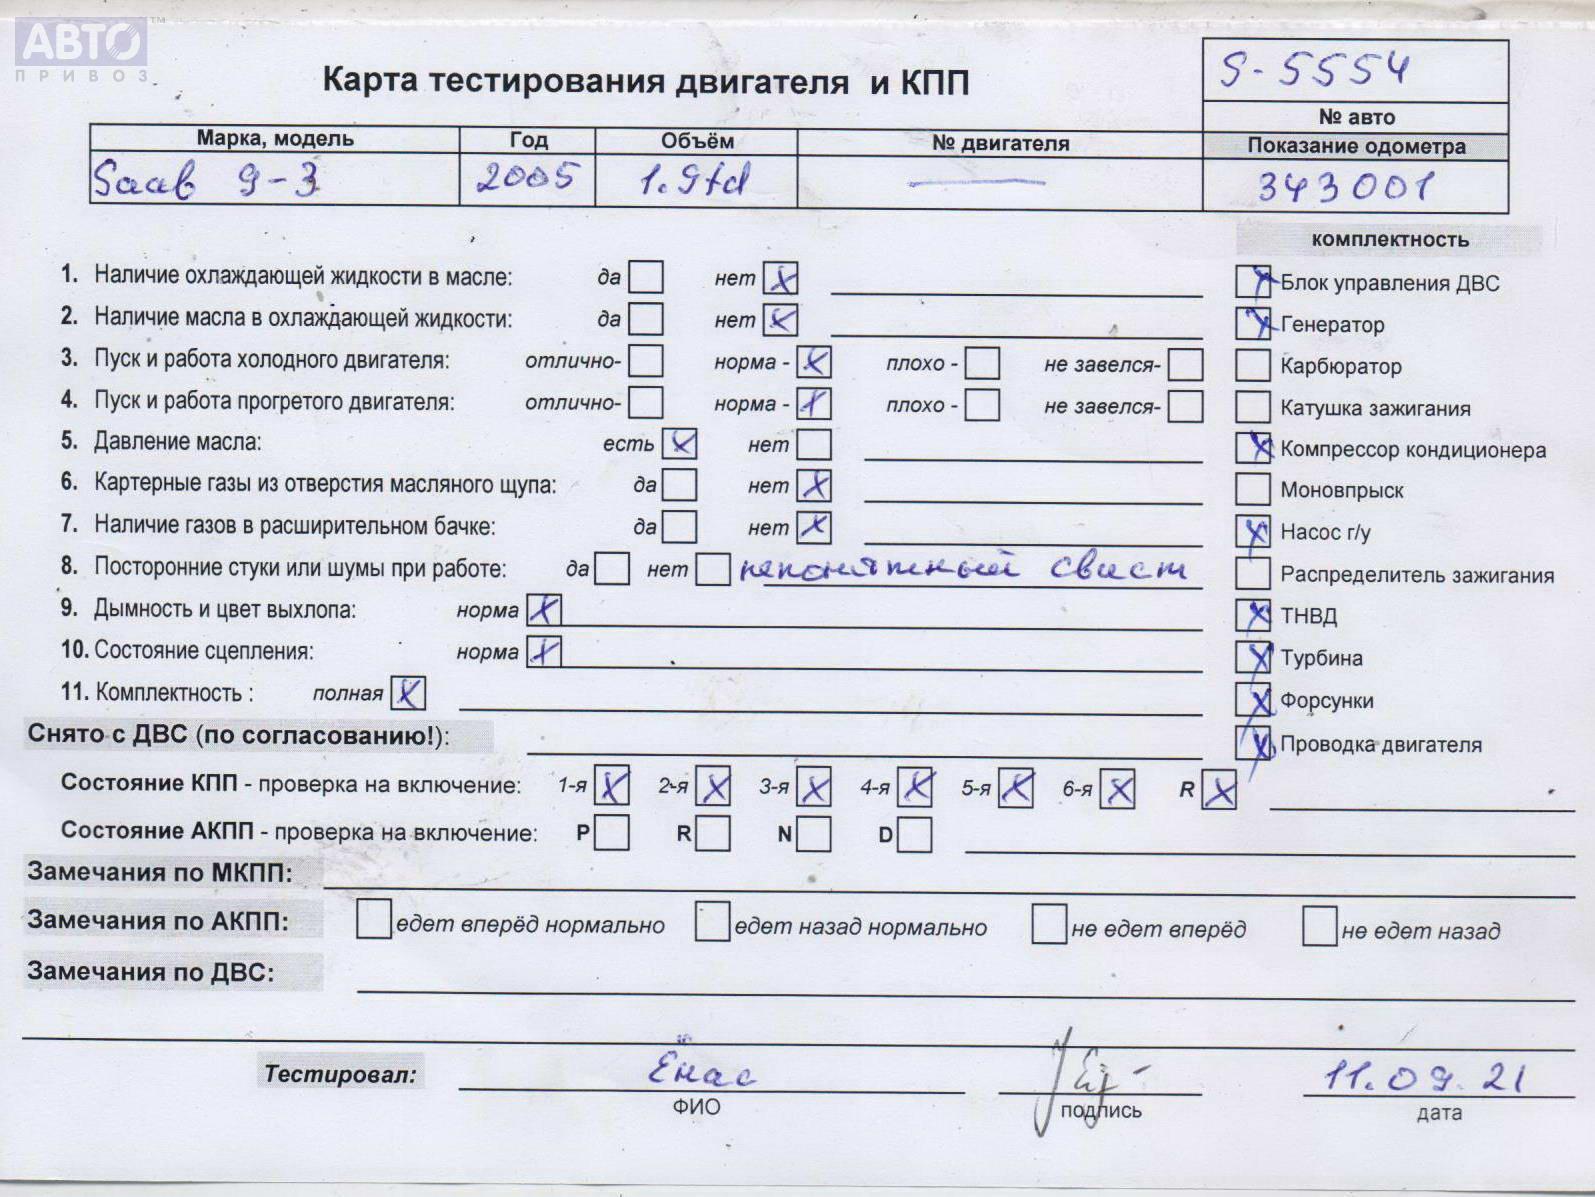 АВТО
ПРИВОЗ
S-5554
Карта тестирования двигателя и КПП
№ авто
Марка, модель Год Объём № двигателя Показание одометра
Saab 9-3 2005 1.9td — 343001
комплектность
1. Наличие охлаждающей жидкости в масле: да нет X
Блок управления ДВС
2. Наличие масла в охлаждающей жидкости: да нет X
Генератор
3. Пуск и работа холодного двигателя: отлично- норма - X плохо - не завелся-
Карбюратор
4. Пуск и работа прогретого двигателя: отлично- норма - X плохо - не завелся-
Катушка зажигания
5. Давление масла: есть X нет
Компрессор кондиционера
6. Картерные газы из отверстия масляного щупа: да нет X
Моновпрыск
7. Наличие газов в расширительном бачке: да нет X
Насос г/у
8. Посторонние стуки или шумы при работе: да нет непонятный свист
Распределитель зажигания
9. Дымность и цвет выхлопа: норма X
ТНВД
10. Состояние сцепления: норма X
Турбина
11. Комплектность : полная X
Форсунки
Снято с ДВС (по согласованию!):
Проводка двигателя
Состояние КПП - проверка на включение: 1-я X 2-я X 3-я X 4-я X 5-я X 6-я X R X
Состояние АКПП - проверка на включение: P R N D
Замечания по МКПП:
Замечания по АКПП: едет вперёд нормально едет назад нормально не едет вперёд не едет назад
Замечания по ДВС:
Тестировал: Енас 11.09.21
ФИО подпись дата